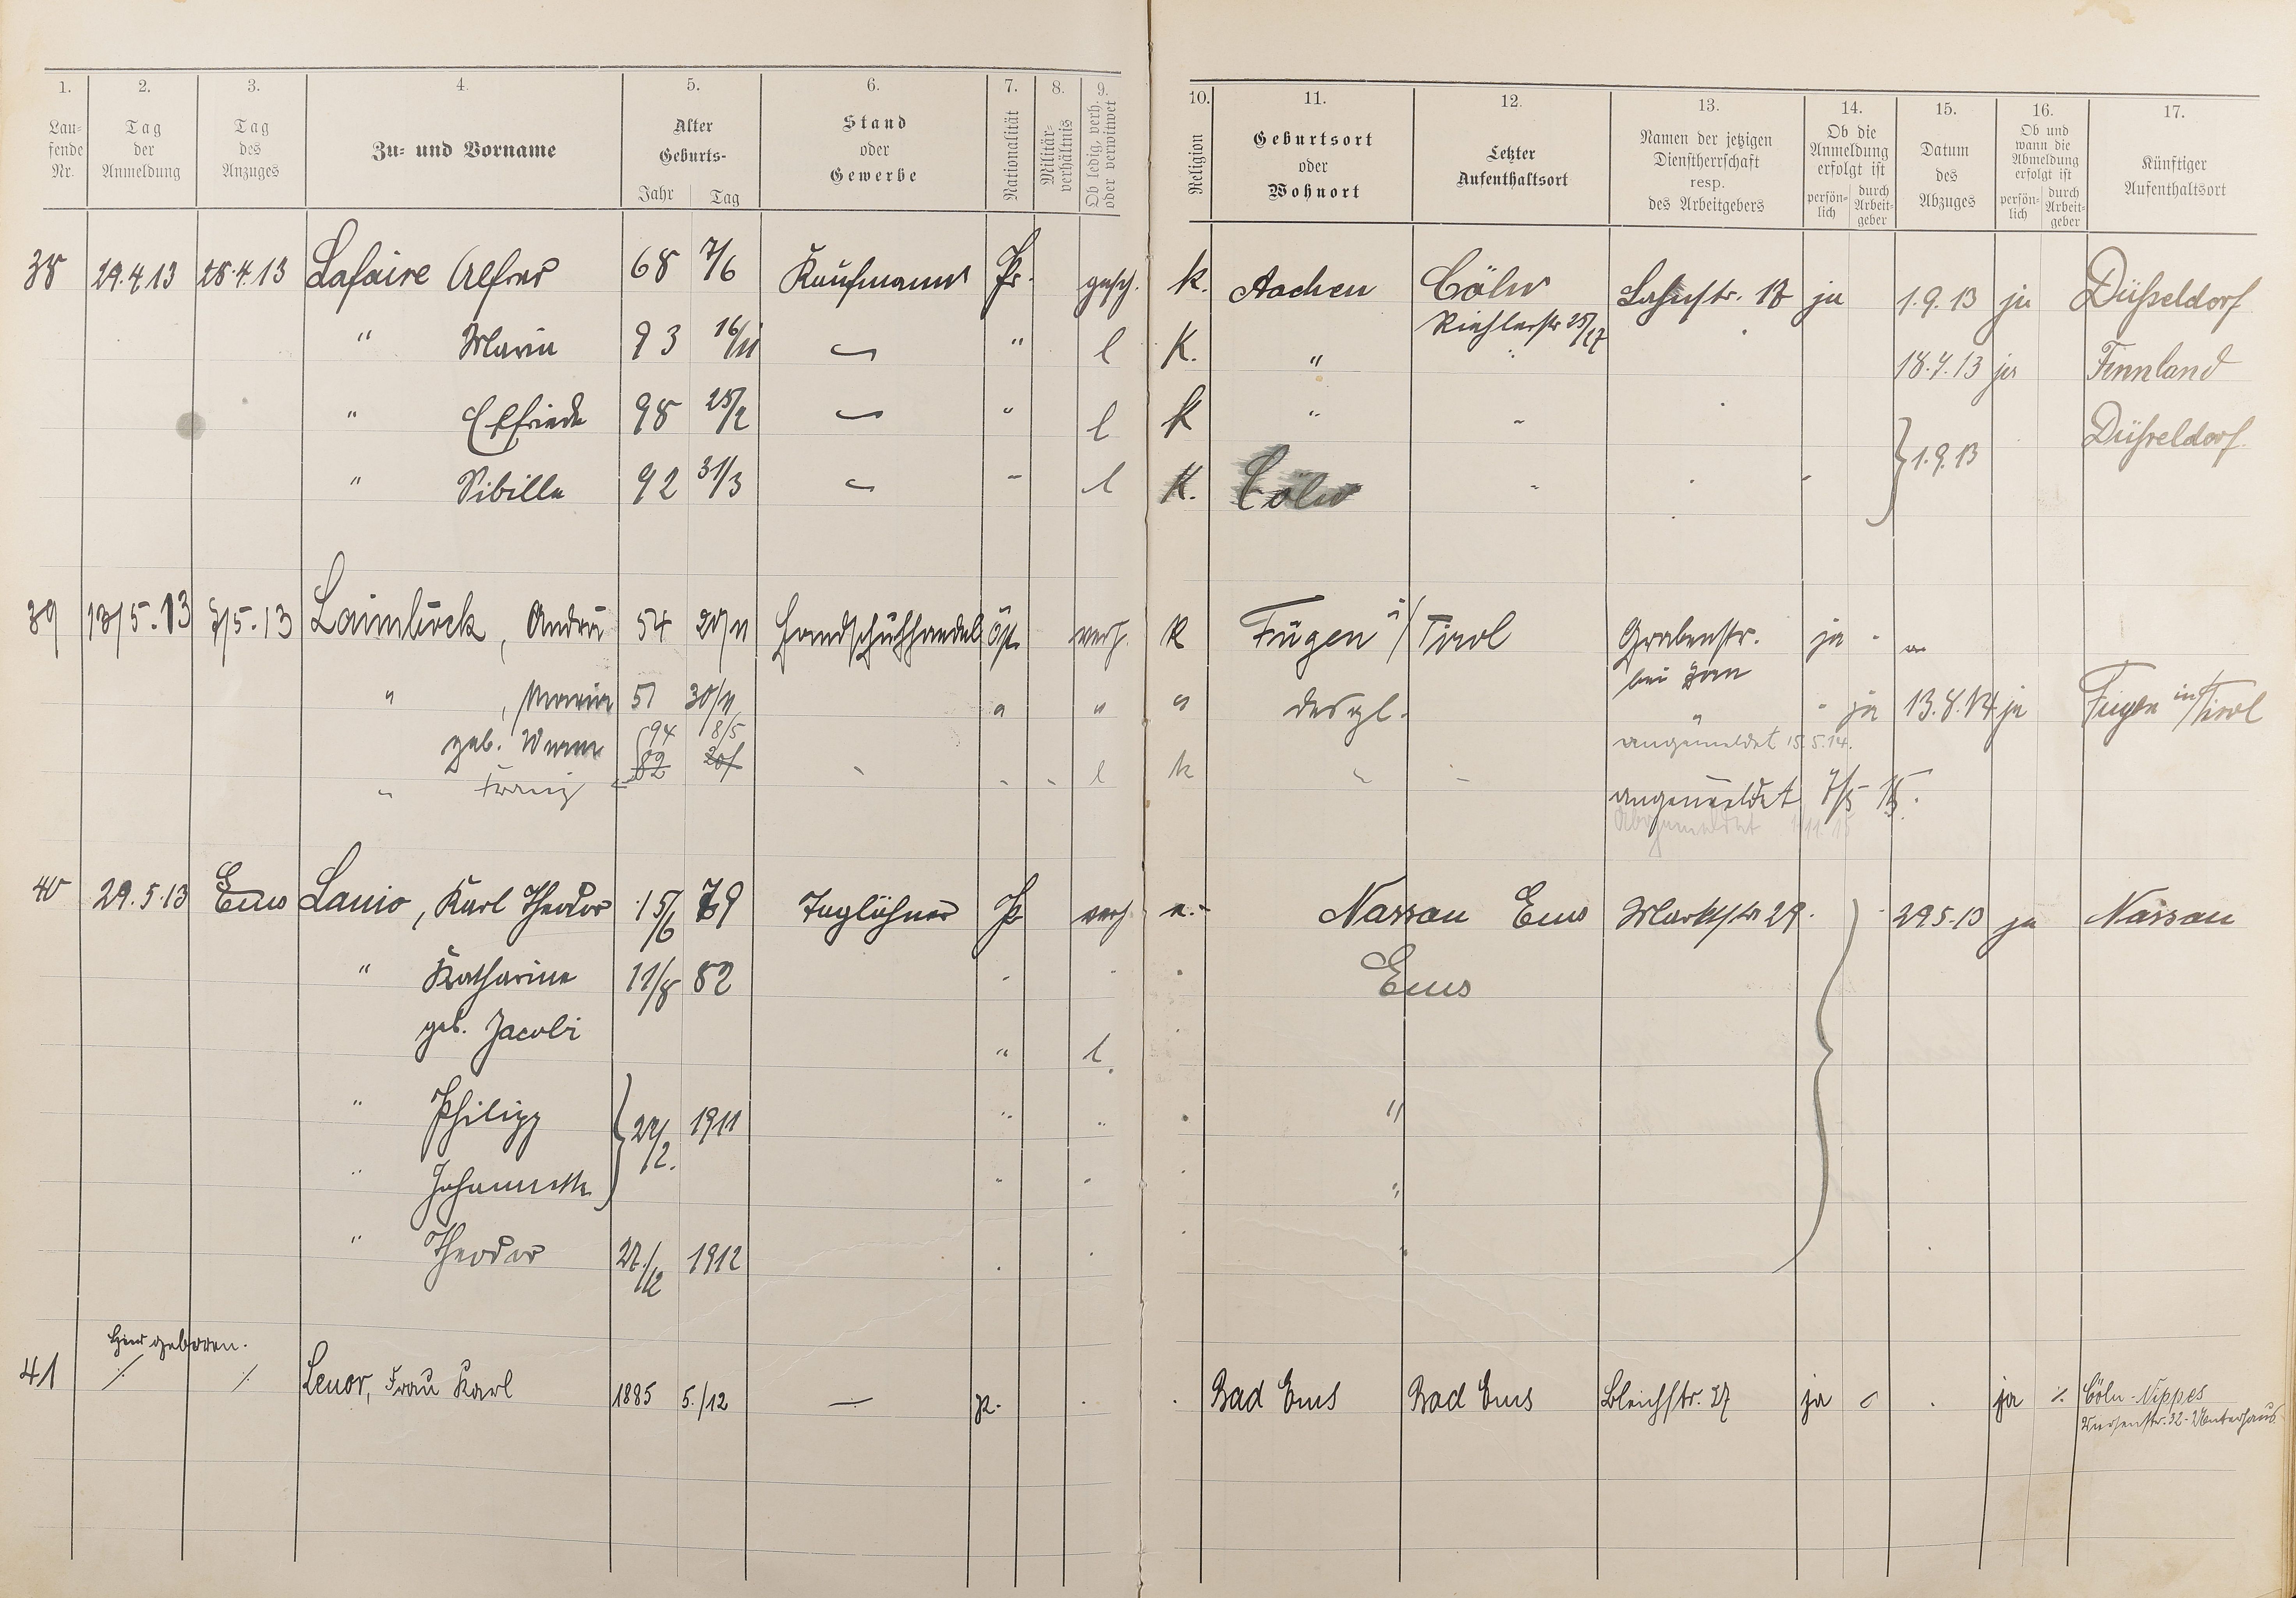 1. 2. 3. 4. 5. 6. 7. 8. 9. 10. 11. 12. 13. 14. 15. 16. 17.
Lau-fende Nr. Tag der Anmeldung Tag des Anzuges Zu- und Vorname Alter Geburts- Jahr Tag Stand oder Gewerbe Nationalität Militär-verhältnis Ob ledig, verh. oder verwitwet Religion Geburtsort oder Wohnort Letzter Aufenthaltsort Namen der jetzigen Dienstherrschaft resp. des Arbeitgebers Ob die Anmeldung erfolgt ist persön-lich durch Arbeit-geber Datum des Abzuges Ob und wann die Abmeldung erfolgt ist persön-lich durch Arbeit-geber Künftiger Aufenthaltsort
38 29.4.13 28.4.13 Lafaire Alfred 68 7/6 Kaufmann Pr. gesch. k. Aachen Cöln Lahnstr. ja 1.9.13 ja Düsseldorf
Riehlerstr 25/27
" Maria 93 16/11 " l K. " " 18.7.13 ja Finnland
" Elfriede 98 25/2 " l k " " Düsseldorf
" Sibilla 92 31/3 " l K. Cöln " 1.9.13
39 13/5.13 /5.13 Laimböck, Andrä 54 /11 Handschuhhandel Öst. verh. K Fügen i/Tirol Grabenstr. ja "
bei
" , Maria 51 30/11 " " " desgl. " " ja 13.8.14 ja Fügen in Tirol
geb. 94 18/5 angemeldet 15.5.14.
82 20/
" Franz " l k " " angemeldet 7/5 15.
Abgemeldet 1.11.15
40 29.5.13 Ems Lanio, Karl Theodor 15/6 79 Taglöhner P verh e. Nassau Ems Marktstr 29. 29.5.13 ja Nassau
" Katharina 11/8 82 " " " Ems
geb. Jacobi
" l.
" Philipp 1911 " " "
/2.
" Johannette " " "
" Theodor 27./12 1912
Hier geboren.
41 ./. ./. Lenor, Frau Karl 1885 5./12 — P. Bad Ems Bad Ems Bleichstr. 37 ja ja ./. Cöln-Nippes
32